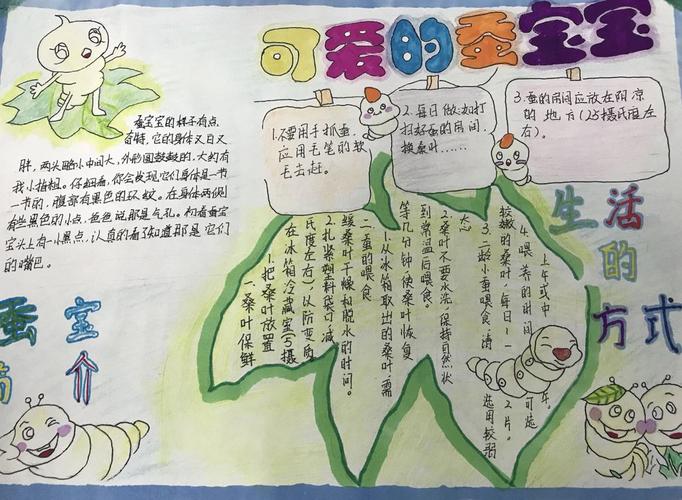 可爱的蚕宝宝
蚕宝宝的样子有点
奇特，它的身体又白又
胖，两头略小中间大，外形圆鼓鼓的，大约有
我小指粗。仔细看，你会发现，它们身体是一节
一节的，腹部有黑色的环纹。在身体两侧
有些黑色的小点，爸爸说那是气孔。初看蚕宝
宝头上有一小黑点，认真的看了知道那是它们
的嘴巴。
蚕宝
简介
1.不要用手抓蚕，
应用毛笔的软
毛去赶。
2.每日做：如打
扫好蚕的房间，
换桑叶……
3.蚕的房间应放在阴凉
的地方（25摄氏度左
右）。
生活
的
方式
一、桑叶保鲜
1.把桑叶放置
在冰箱冷藏室（5摄
氏度左右），以防变质
2.扎紧塑料袋可减
缓桑叶干燥和脱水的时间。
二、蚕的喂食
1.从冰箱取出的桑叶，需
等几分钟，使桑叶恢复
到常温后喂食。
2.桑叶不要水洗，保持自然状
态
3.二龄小蚕喂食，
选用较
较嫩的桑叶，每日1-
2片。
4.喂养的时间
可选
上午或中
午。